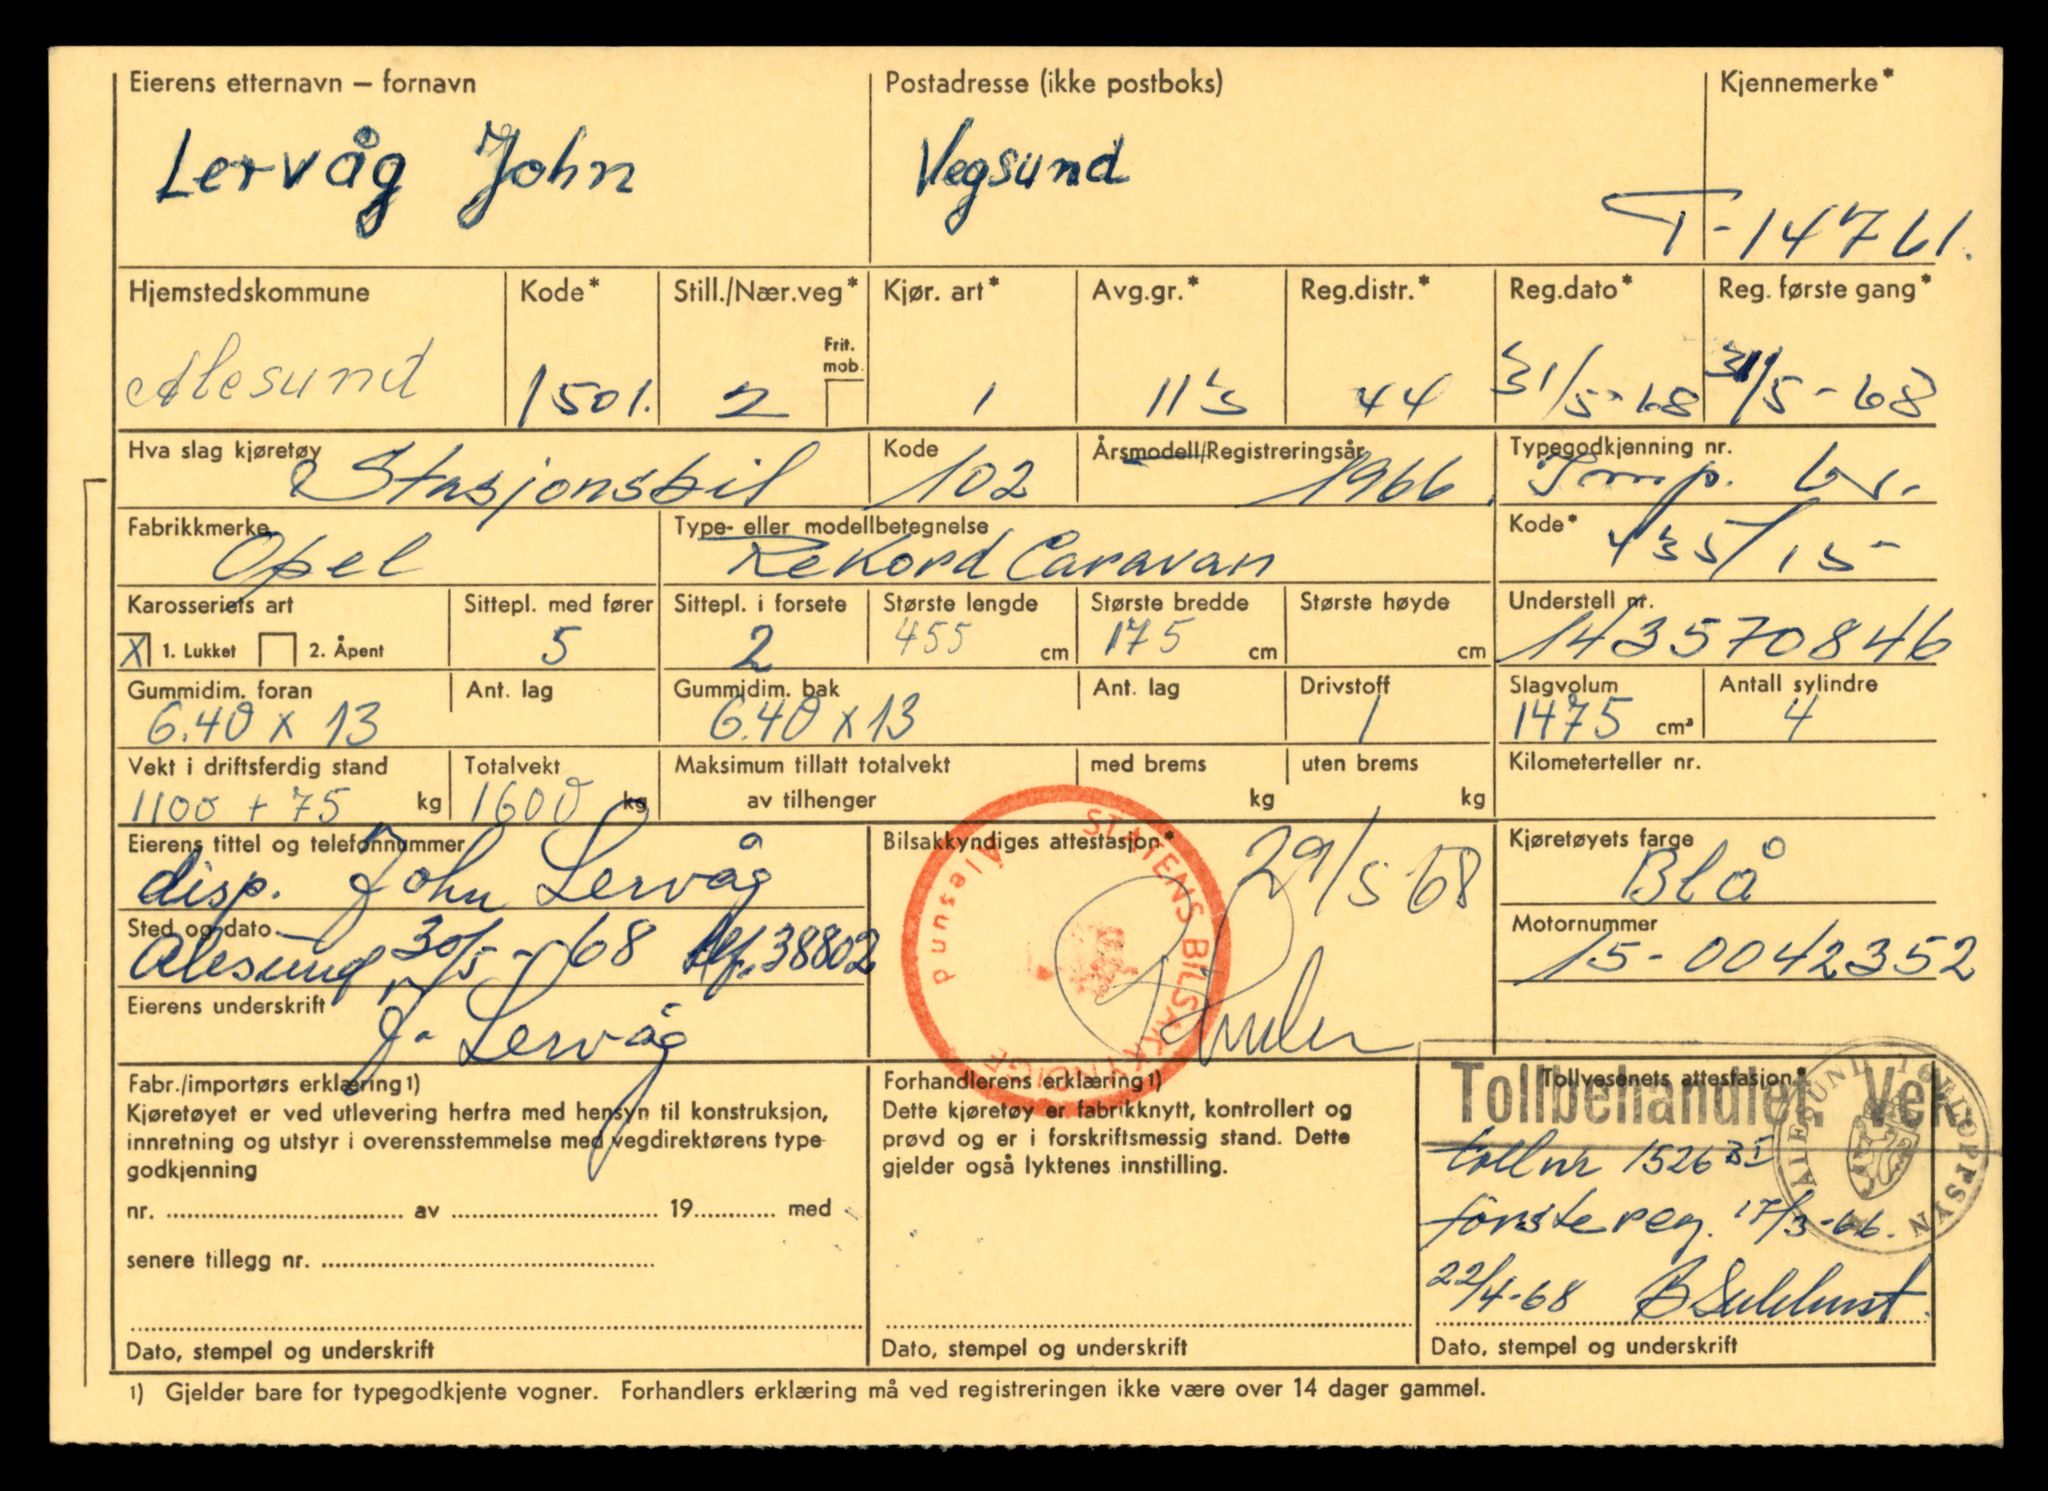 Eierens etternavn – fornavn Postadresse (ikke postboks) Kjennemerke*
Lervåg John Vegsund T-14761.
Hjemstedskommune Kode* Still./Nær.veg* Kjør. art* Avg.gr.* Reg.distr.* Reg.dato* Reg. første gang*
Frit. mob.
Alesund 1501. 2 1 113 44 31/5-68 31/5-68
Hva slag kjøretøy Kode Årsmodell/Registreringsår Typegodkjenning nr.
Stasjonsbil 102 1966. Imp. br.
Fabrikkmerke Type- eller modellbetegnelse Kode*
Opel Rekord Caravan 435/15-
Karosseriets art Sittepl. med fører Sittepl. i forsete Største lengde Største bredde Største høyde Understell nr.
X 1. Lukket 2. Åpent 5 2 455 cm 175 cm cm 143570846
Gummidim. foran Ant. lag Gummidim. bak Ant. lag Drivstoff Slagvolum Antall sylindre
6.40 x 13 6.40 x 13 1 1475 cm³ 4
Vekt i driftsferdig stand Totalvekt Maksimum tillatt totalvekt med brems uten brems Kilometerteller nr.
1100 + 75 kg 1600 kg av tilhenger kg kg
Eierens tittel og telefonnummer Bilsakkyndiges attestasjon* Kjøretøyets farge
disp. John Lervåg 29/5 68 Blå
STATENS BILSAKKYNDIGE
Ålesund
Sted og dato Motornummer
Alesund 30/5-68 tlf. 38802 15-0042352
Eierens underskrift
J. Lervåg
Fabr./importørs erklæring 1) Forhandlerens erklæring 1) Tollvesenets attestasjon*
Tollbehandlet. Vek.
ÅLESUND TOLLOPPSYN
Kjøretøyet er ved utlevering herfra med hensyn til konstruksjon,
innretning og utstyr i overensstemmelse med vegdirektørens type-
godkjenning
nr. av 19 med
senere tillegg nr.
Dette kjøretøy er fabrikknytt, kontrollert og
prøvd og er i forskriftsmessig stand. Dette
gjelder også lyktenes innstilling.
toll nr 1526 BI
første reg. 17/3-66.
22/4-68
Dato, stempel og underskrift Dato, stempel og underskrift Dato, stempel og underskrift
1) Gjelder bare for typegodkjente vogner. Forhandlers erklæring må ved registreringen ikke være over 14 dager gammel.